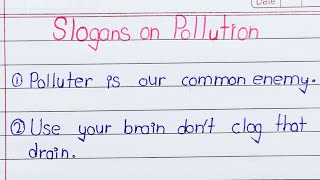 Date
Slogans on Pollution
① Polluter is our common enemy.
② Use your brain don't clog that
drain.